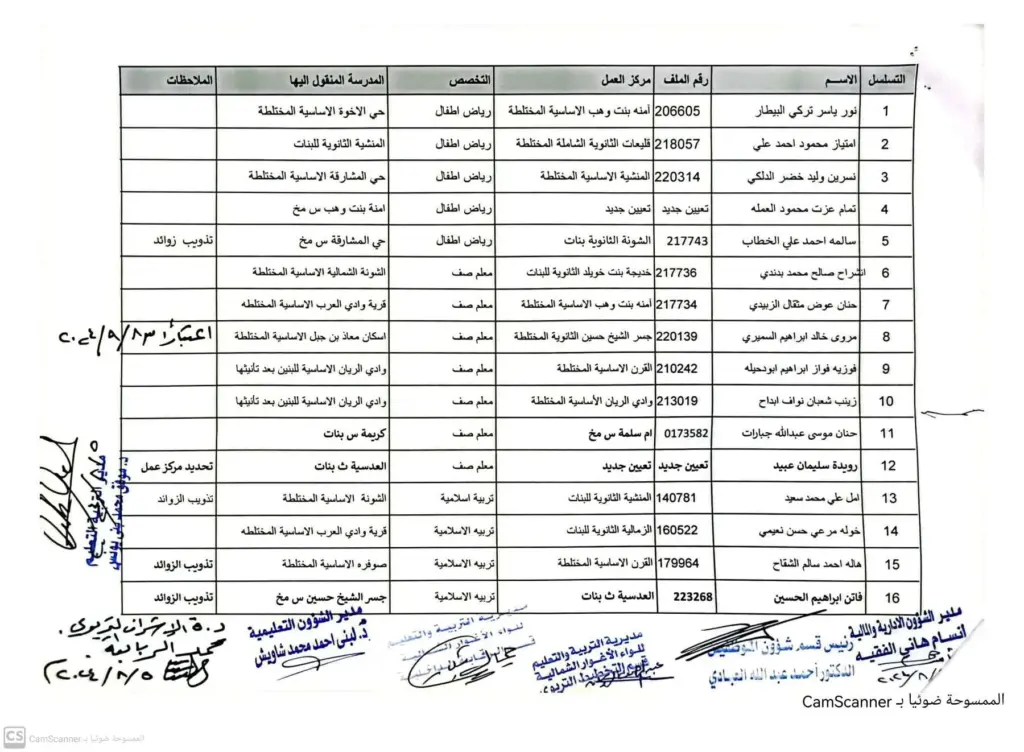 التسلسل الاســـم رقم الملف مركز العمل التخصص المدرسة المنقول اليها الملاحظات
1 نور ياسر تركي البيطار 206605 أمنه بنت وهب الاساسية المختلطة رياض اطفال حي الاخوة الاساسية المختلطة
2 امتياز محمود احمد علي 218057 قليعات الثانوية الشاملة المختلطة رياض اطفال المنشية الثانوية للبنات
3 نسرين وليد خضر الدلكي 220314 المنشية الاساسية المختلطة رياض اطفال حي المشارقة الاساسية المختلطة
4 تمام عزت محمود العمله تعيين جديد تعيين جديد رياض اطفال امنة بنت وهب س مخ
5 سالمه احمد علي الخطاب 217743 الشونة الثانوية بنات رياض اطفال حي المشارقة س مخ تذويب زوائد
6 انشراح صالح محمد بدندي 217736 خديجة بنت خويلد الثانوية للبنات معلم صف الشونة الشمالية الاساسية المختلطة
7 حنان عوض مثقال الزبيدي 217734 أمنه بنت وهب الاساسية المختلطة معلم صف قرية وادي العرب الاساسية المختلطه
8 مروى خالد ابراهيم السميري 220139 جسر الشيخ حسين الثانوية المختلطة معلم صف اسكان معاذ بن جبل الاساسية المختلطة اعتباراً
9 فوزيه فواز ابراهيم ابودحيله 210242 القرن الاساسية المختلطة معلم صف وادي الريان الاساسية للبنين بعد تأنيثها
10 زينب شعبان نواف ابداح 213019 وادي الريان الأساسية المختلطة معلم صف وادي الريان الاساسية للبنين بعد تأنيثها
11 حنان موسى عبدالله جبارات 0173582 ام سلمة س مخ معلم صف كريمة س بنات
12 رويدة سليمان عبيد تعيين جديد تعيين جديد معلم صف العدسية ث بنات تحديد مركز عمل
13 امل علي محمد سعيد 140781 المنشية الثانوية للبنات تربية اسلامية الشونة الاساسية المختلطة تذويب الزوائد
14 خوله مرعي حسن نعيمي 160522 الزمالية الثانوية للبنات تربيه الاسلامية قرية وادي العرب الاساسية المختلطه
15 هاله احمد سالم الشقاح 179964 القرن الاساسية المختلطة تربيه الاسلامية صوفره الاساسية المختلطة تذويب الزوائد
16 فاتن ابراهيم الحسين 223268 العدسية ث بنات تربيه الاسلامية جسر الشيخ حسين س مخ تذويب الزوائد
مدير التربية والتعليم
مدير الشؤون الادارية والمالية
ابتسام هاني الفقيه
رئيس قسم شؤون الموظفين
الدكتور أحمد عبد الله العبادي
مديرية التربية والتعليم
للواء الأغوار الشمالية
قسم التخطيط التربوي
مديرية التربية والتعليم
للواء الأغوار الشمالية
مدير الشؤون التعليمية
د. لبنى احمد محمد شاويش
٢٠٢٤/٨/٥
الممسوحة ضوئيا بـ CamScanner
CS CamScanner الممسوحة ضوئيا بـ